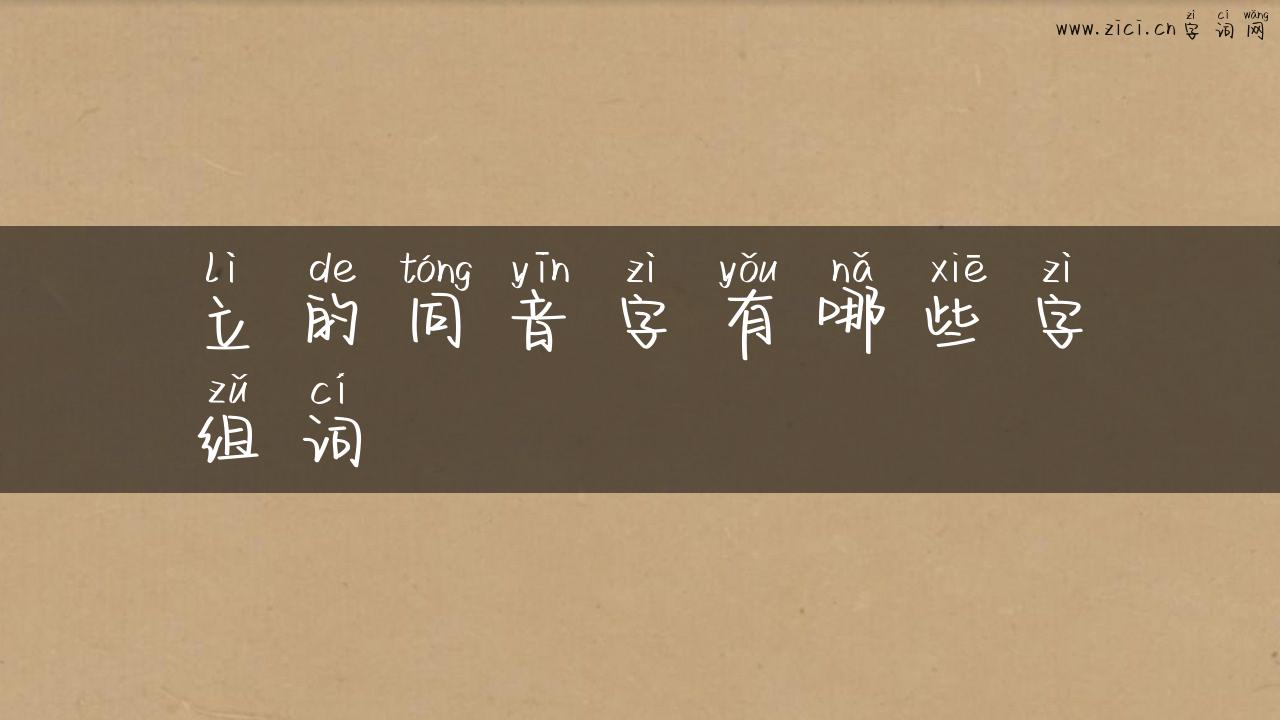 zì cí wǎng
www.zici.cn 字词网
lì de tóng yīn zì yǒu nǎ xiē zì
立的同音字有哪些字
zǔ cí
组词